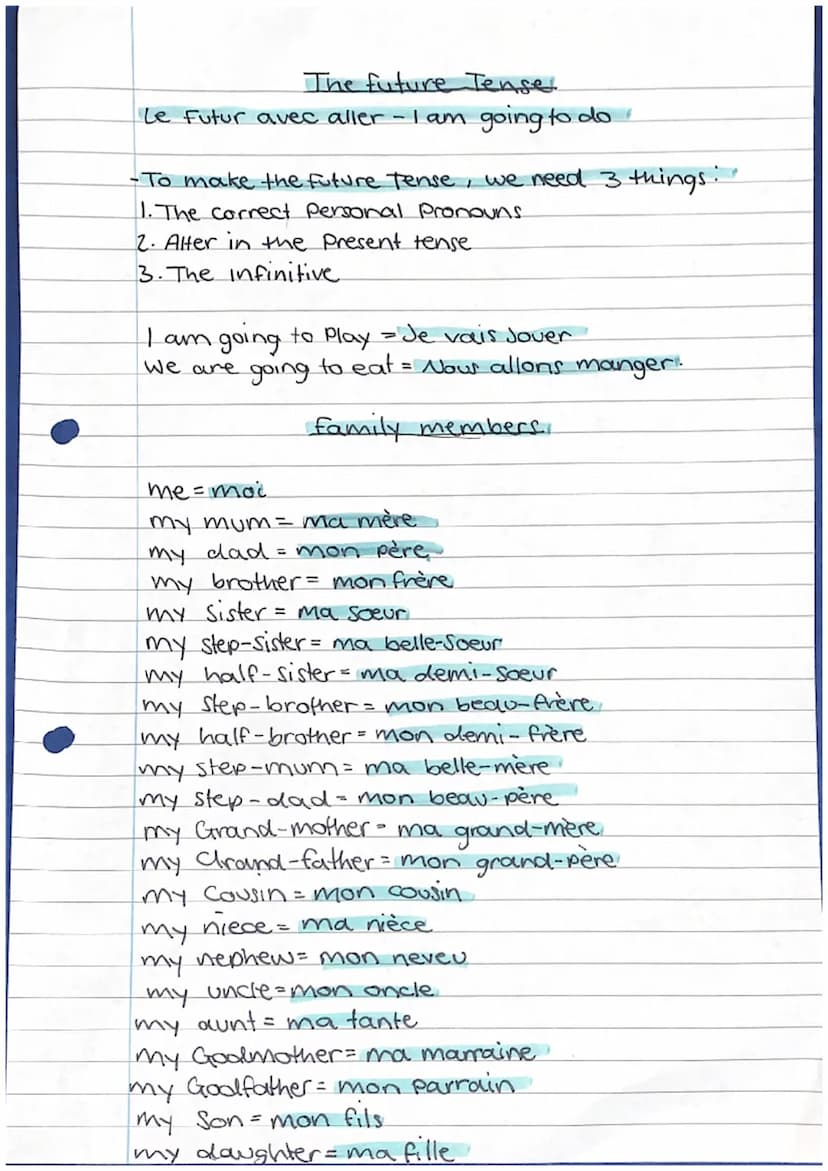 The future Tense.
Le Futur avec aller - I am going to do
- To make the future Tense, we need 3 things:
1. The correct Personal Pronouns
2. Aller in the Present tense
3. The infinitive
I am going to Play = Je vais Jouer
We are going to eat = Nous allons manger.
family members.
me = moi
my mum = ma mère
my dad = mon père
my brother = mon frère
my sister = ma soeur
my step-sister = ma belle-soeur
my half-sister = ma demi-soeur
my step-brother = mon beau-frère
my half-brother = mon demi-frère
my step-mum = ma belle-mère
my step-dad = mon beau-père
my Grand-mother = ma grand-mère
my Grand-father = mon grand-père
my Cousin = mon cousin
my niece = ma nièce
my nephew = mon neveu
my uncle = mon oncle
my aunt = ma tante
my Godmother = ma marraine
my Godfather = mon parrain
my Son = mon fils
my daughter = ma fille